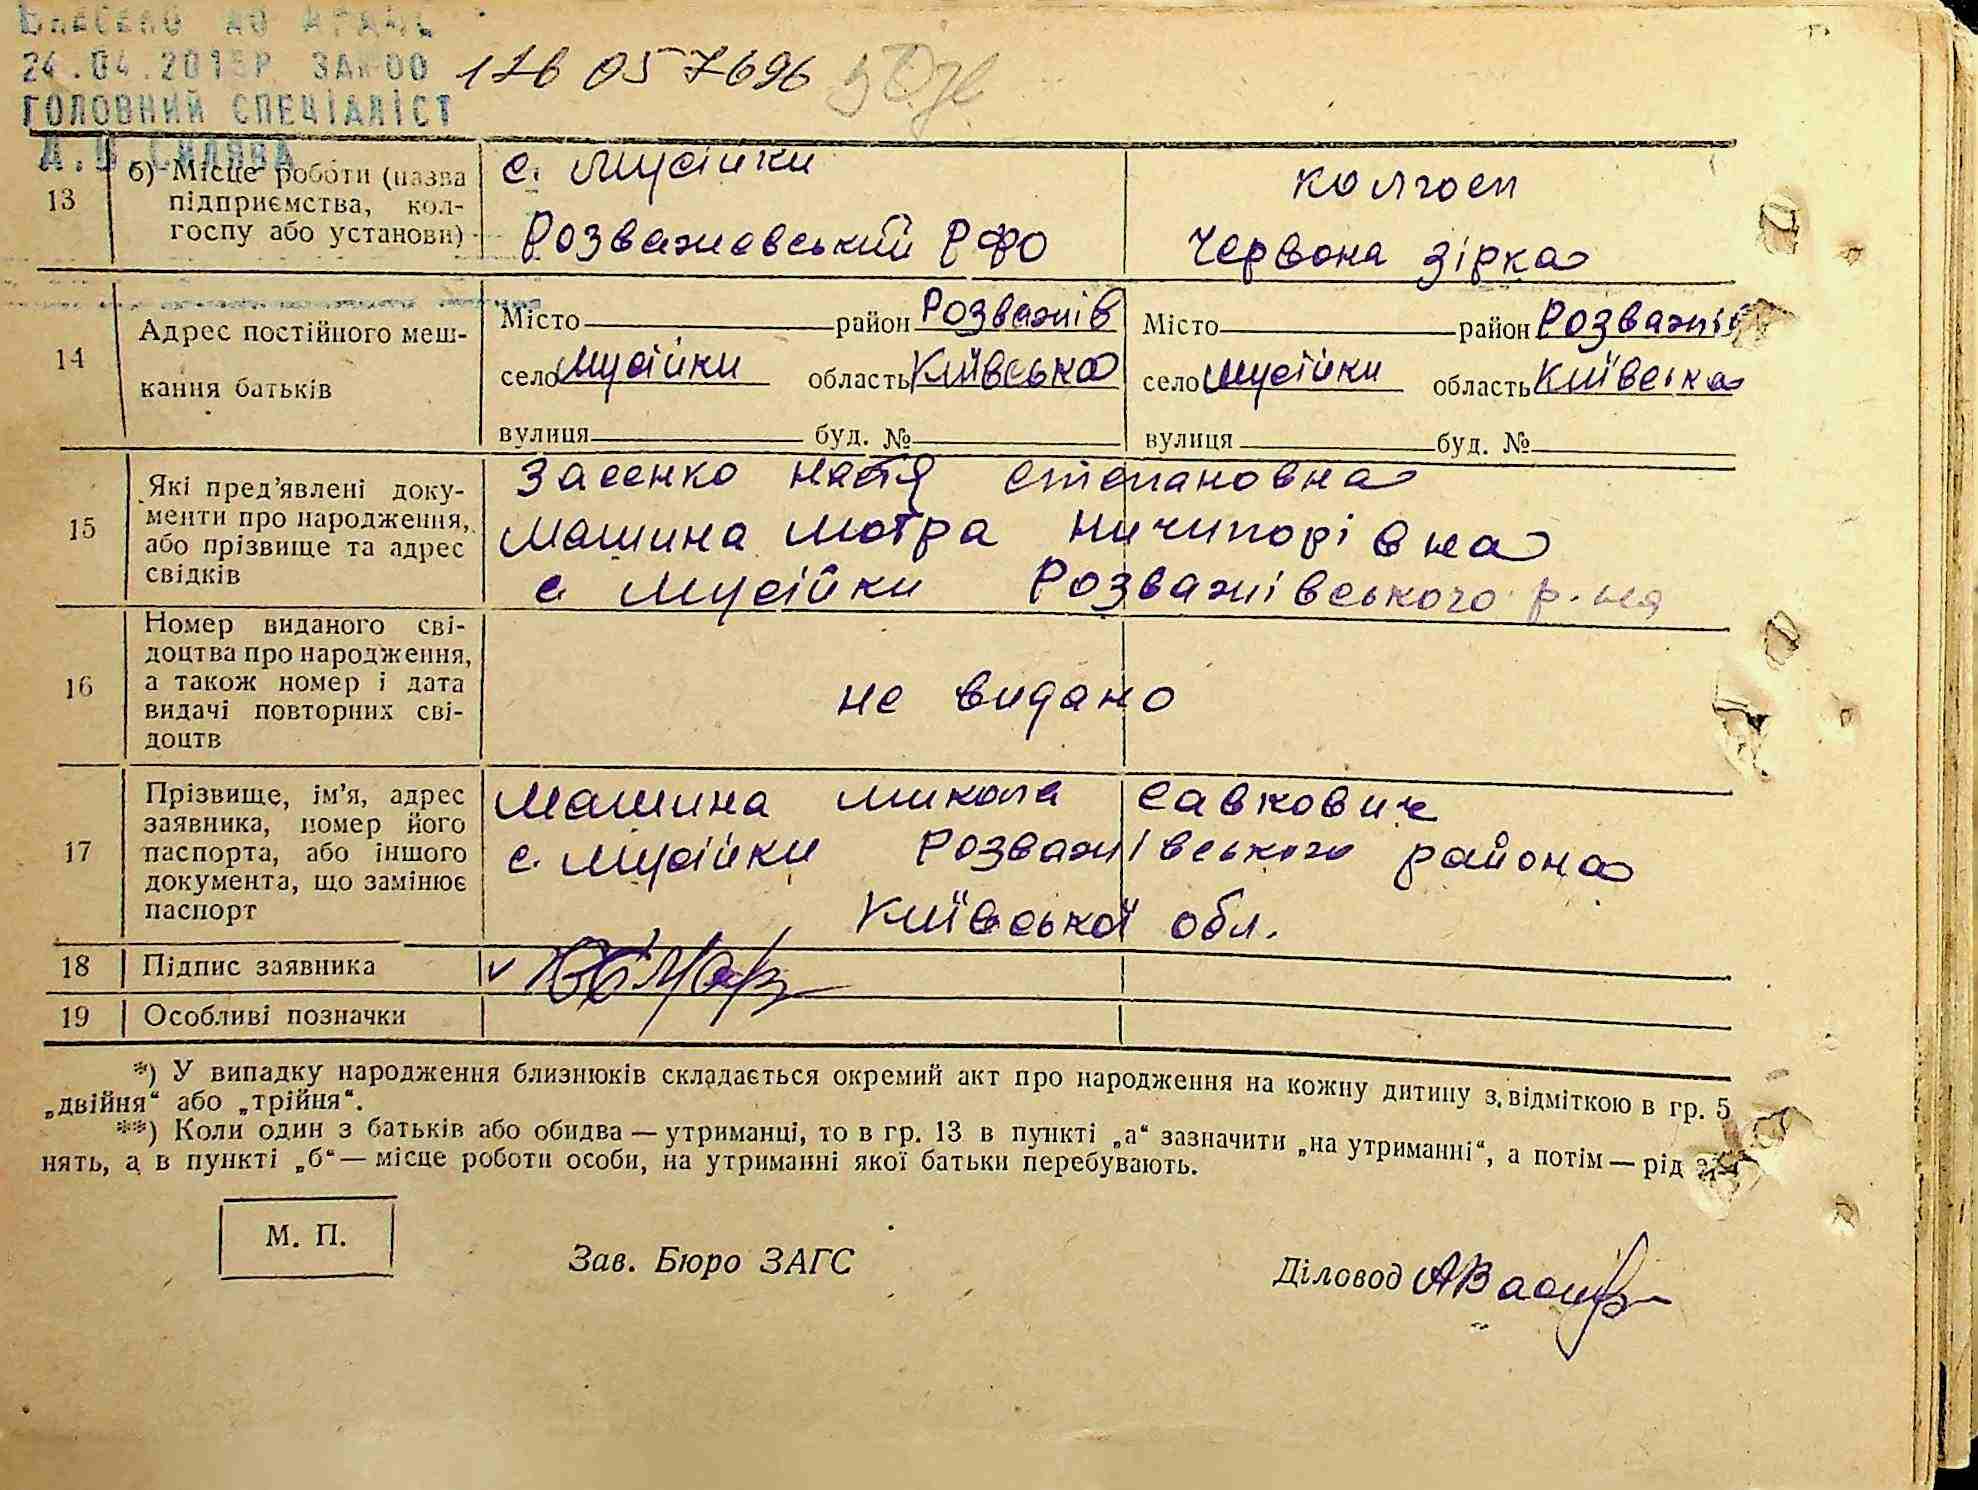 Внесено до ДРАЦС
24.04.2015Р. ЗАК 00
ГОЛОВНИЙ СПЕЦІАЛІСТ
176 057696
13
б) Місце роботи (назва
підприємства, кол-
госпу або установи)
с. Мусійки
Розважевський РФО
колгосп
Червона зірка
14
Адрес постійного меш-
кання батьків
Місто район Розважів
село Мусійки область Київська
вулиця буд. №
Місто район Розважів
село Мусійки область Київська
вулиця буд. №
15
Які пред’явлені доку-
менти про народження,
або прізвище та адрес
свідків
Засенко настя степановна
Машина Мотра ничипорівна
с Мусійки Розважівського р-на
16
Номер виданого сві-
доцтва про народження,
а також номер і дата
видачі повторних сві-
доцтв
не видано
17
Прізвище, ім’я, адрес
заявника, номер його
паспорта, або іншого
документа, що замінює
паспорт
Машина микола савкович
с. Мусійки Розважівського района
Київської обл.
18
Підпис заявника
19
Особливі позначки
*) У випадку народження близнюків складається окремий акт про народження на кожну дитину з відміткою в гр. 5
„двійня“ або „трійня“.
**) Коли один з батьків або обидва — утриманці, то в гр. 13 в пункті „а“ зазначити „на утриманні“, а потім — рід за-
нять, а в пункті „б“ — місце роботи особи, на утриманні якої батьки перебувають.
М. П.
Зав. Бюро ЗАГС
Діловод